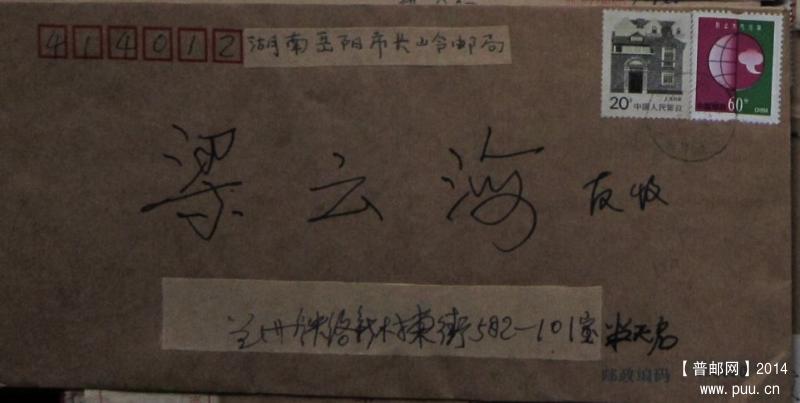 414012 湖南岳阳市长岭邮局
20分 中国人民邮政
60分 CHINA
梁云海 友收
兰州铁路新村东街582-101室
邮政编码
【普邮网】2014
www.puu.cn